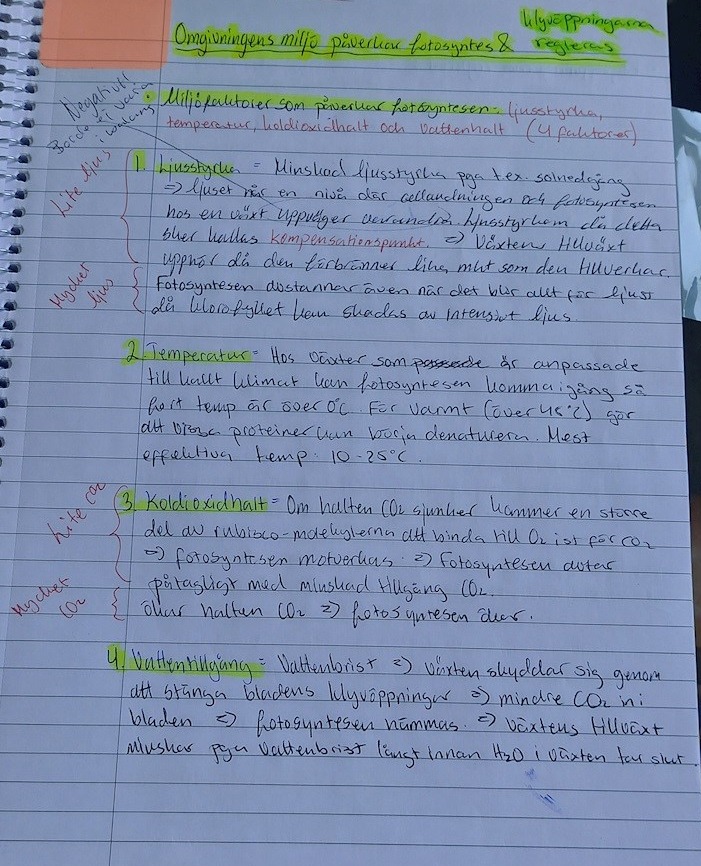 Omgivningens miljö påverkar fotosyntes & klyvöppningarna regleras
Negativt
Borde ej vara
i
• Miljöfaktorer som påverkar fotosyntesen = ljusstyrka,
temperatur, koldioxidhalt och vattenhalt (4 faktorer)
Lite ljus
1. Ljusstyrka = Minskad ljusstyrka pga tex. solnedgång
=> ljuset når en nivå där cellandningen och fotosyntesen
hos en växt uppväger varandra. Ljusstyrkan då detta
sker kallas kompensationspunkt. => Växtens tillväxt
upphör då den förbränner lika mkt som den tillverkar.
Mycket
ljus
Fotosyntesen avstannar även när det blir allt för ljust
då klorofyllet kan skadas av intensivt ljus.
2. Temperatur = Hos växter som är anpassade
till kallt klimat kan fotosyntesen komma igång så
fort temp är över 0°C. För varmt (över 45°C) gör
att vissa proteiner kan börja denaturera. Mest
effektiva temp: 10-25°C.
Lite CO2
3. Koldioxidhalt = Om halten CO2 sjunker kommer en större
del av rubisco-molekylerna att binda till O2 ist för CO2
=> fotosyntesen motverkas. => Fotosyntesen avtar
påtagligt med minskad tillgång CO2.
Mycket
CO2
Ökar halten CO2 => fotosyntesen ökar.
4. Vattentillgång = Vattenbrist => växten skyddar sig genom
att stänga bladens klyvöppningar => mindre CO2 in i
bladen => fotosyntesen hämmas. => växtens tillväxt
minskar pga vattenbrist långt innan H2O i växten tar slut.